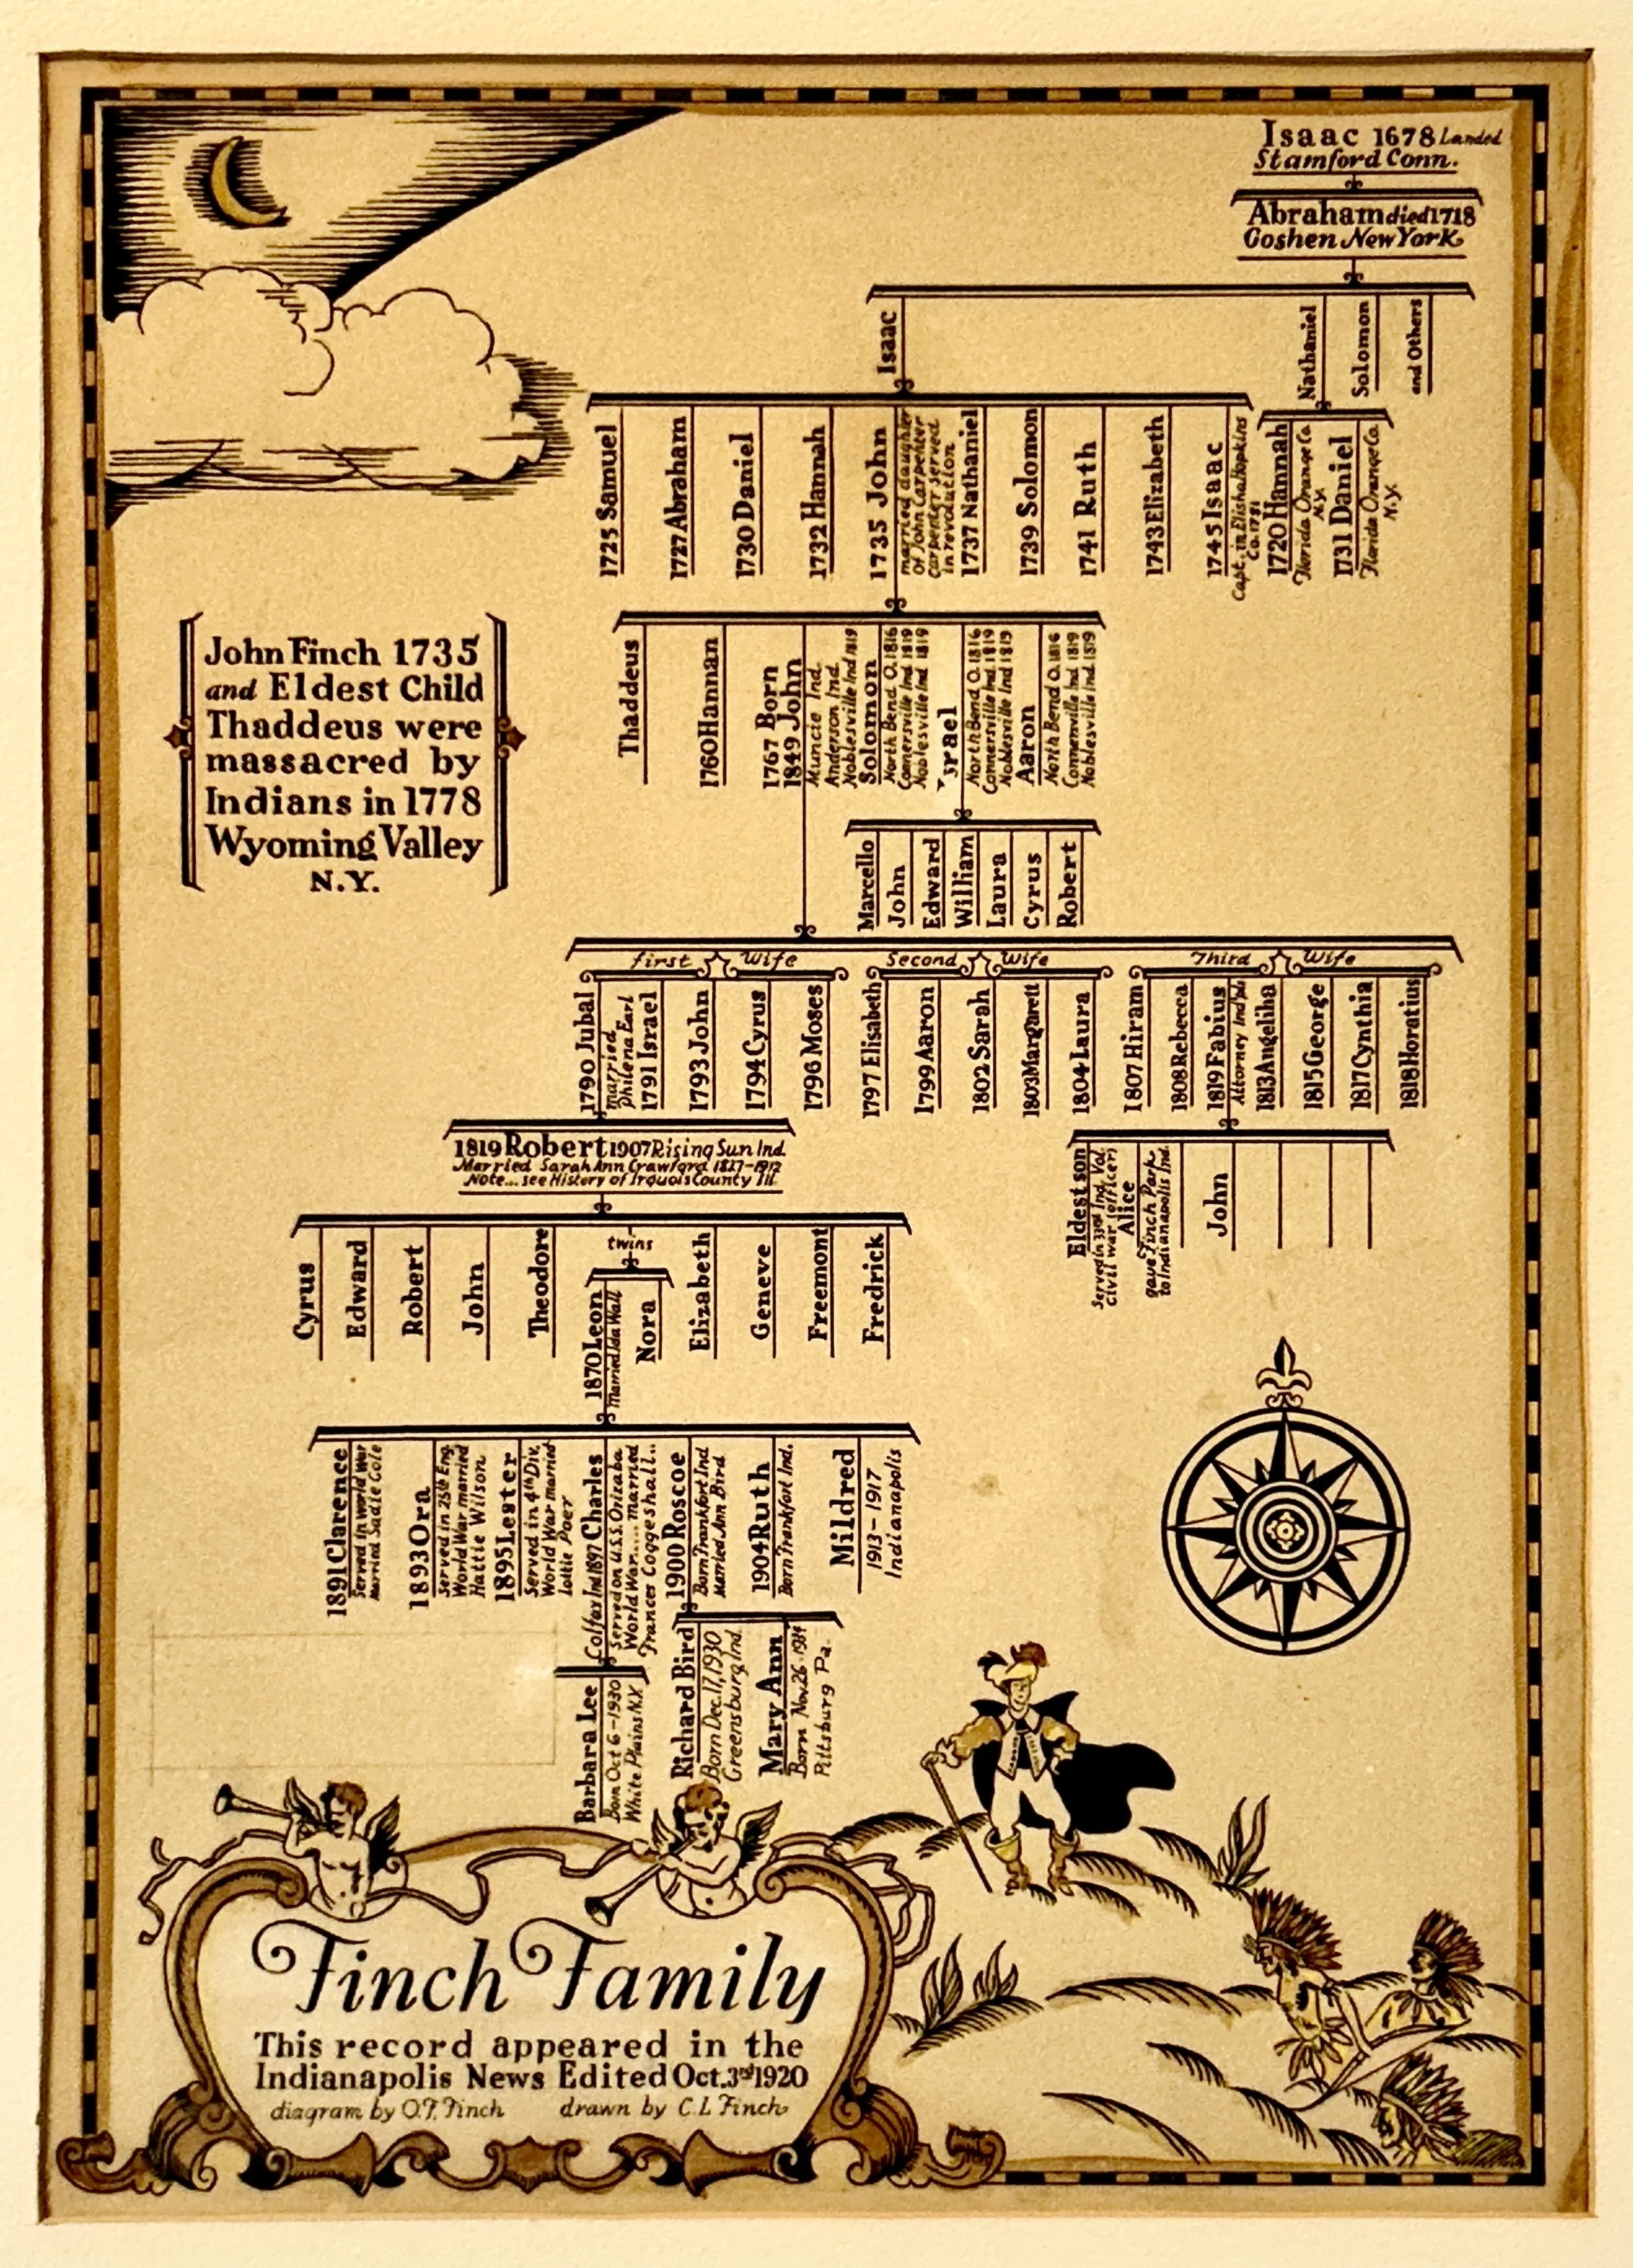 Isaac 1678 Landed
Stamford Conn.
Abraham died 1718
Goshen New York
Isaac
Nathaniel
Solomon
and Others
1725 Samuel
1727 Abraham
1730 Daniel
1732 Hannah
1735 John
married daughter
of John Carpenter
Carpenter served
in revolution
1737 Nathaniel
1739 Solomon
1741 Ruth
1743 Elizabeth
1745 Isaac
Capt. in Elisha Hopkins
Co. 1781
1720 Hannah
Florida Orange Co.
N.Y.
1731 Daniel
Florida Orange Co.
N.Y.
John Finch 1735
and Eldest Child
Thaddeus were
massacred by
Indians in 1778
Wyoming Valley
N.Y.
Thaddeus
1760 Hannan
1767 Born
1849 John
Muncie Ind.
Anderson Ind.
Noblesville Ind 1819
Solomon
North Bend O. 1816
Connersville Ind 1819
Noblesville Ind 1819
srael
North Bend O. 1816
Connersville Ind. 1819
Noblesville Ind 1819
Aaron
North Bend O. 1816
Connersville Ind 1819
Noblesville Ind 1819
Marcello
John
Edward
William
Laura
Cyrus
Robert
first Wife
Second Wife
Third Wife
1790 Jubal
married
Philena Earl
1791 Israel
1793 John
1794 Cyrus
1796 Moses
1797 Elisabeth
1799 Aaron
1802 Sarah
1803 Margarett
1804 Laura
1807 Hiram
1808 Rebecca
1819 Fabius
Attorney Indpls
1813 Angeliha
1815 George
1817 Cynthia
1818 Horatius
1819 Robert 1907 Rising Sun Ind.
Married Sarah Ann Crawford 1827-1912
Note... see History of Irquois County Ill.
Eldest son
Served in 33rd Ind. Vol.
civil war (officer)
Alice
gave Finch Park
to Indianapolis Ind.
John
Cyrus
Edward
Robert
John
Theodore
twins
1870 Leon
Married Ida Wall
Nora
Elizabeth
Geneve
Freemont
Fredrick
1891 Clarence
Served in world war
Married Sadie Cole
1893 Ora
Served in 25th Eng.
World War married
Hattie Wilson
1895 Lester
Served in 4th Div.
World War married
Lottie Poer
Colfax Ind 1897 Charles
Served on U.S.S. Orizaba
World War.... married
Frances Coggeshall..
1900 Roscoe
Born Frankfort Ind
Married Ann Bird
1904 Ruth
Born Frankfort Ind.
Mildred
1913-1917
Indianapolis
Barbara Lee
Born Oct 6-1930
White Plains N.Y.
Richard Bird
Born Dec. 17, 1930
Greensburg Ind.
Mary Ann
Born Nov. 26-1934
Pittsburg Pa.
Finch Family
This record appeared in the
Indianapolis News Edited Oct. 3rd 1920
diagram by O.F. Finch drawn by C.L Finch